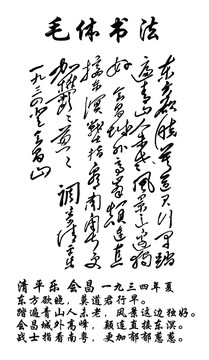 毛体书法
东方欲晓莫道君行早踏
遍青山人未老风景这边独
好会昌城外高峰颠连直
接东溟战士指看南粤更
加郁郁葱葱
调寄清平乐
一九三四年
清平乐 会昌 一九三四年夏
东方欲晓，莫道君行早。
踏遍青山人未老，风景这边独好。
会昌城外高峰，颠连直接东溟。
战士指看南粤，更加郁郁葱葱。